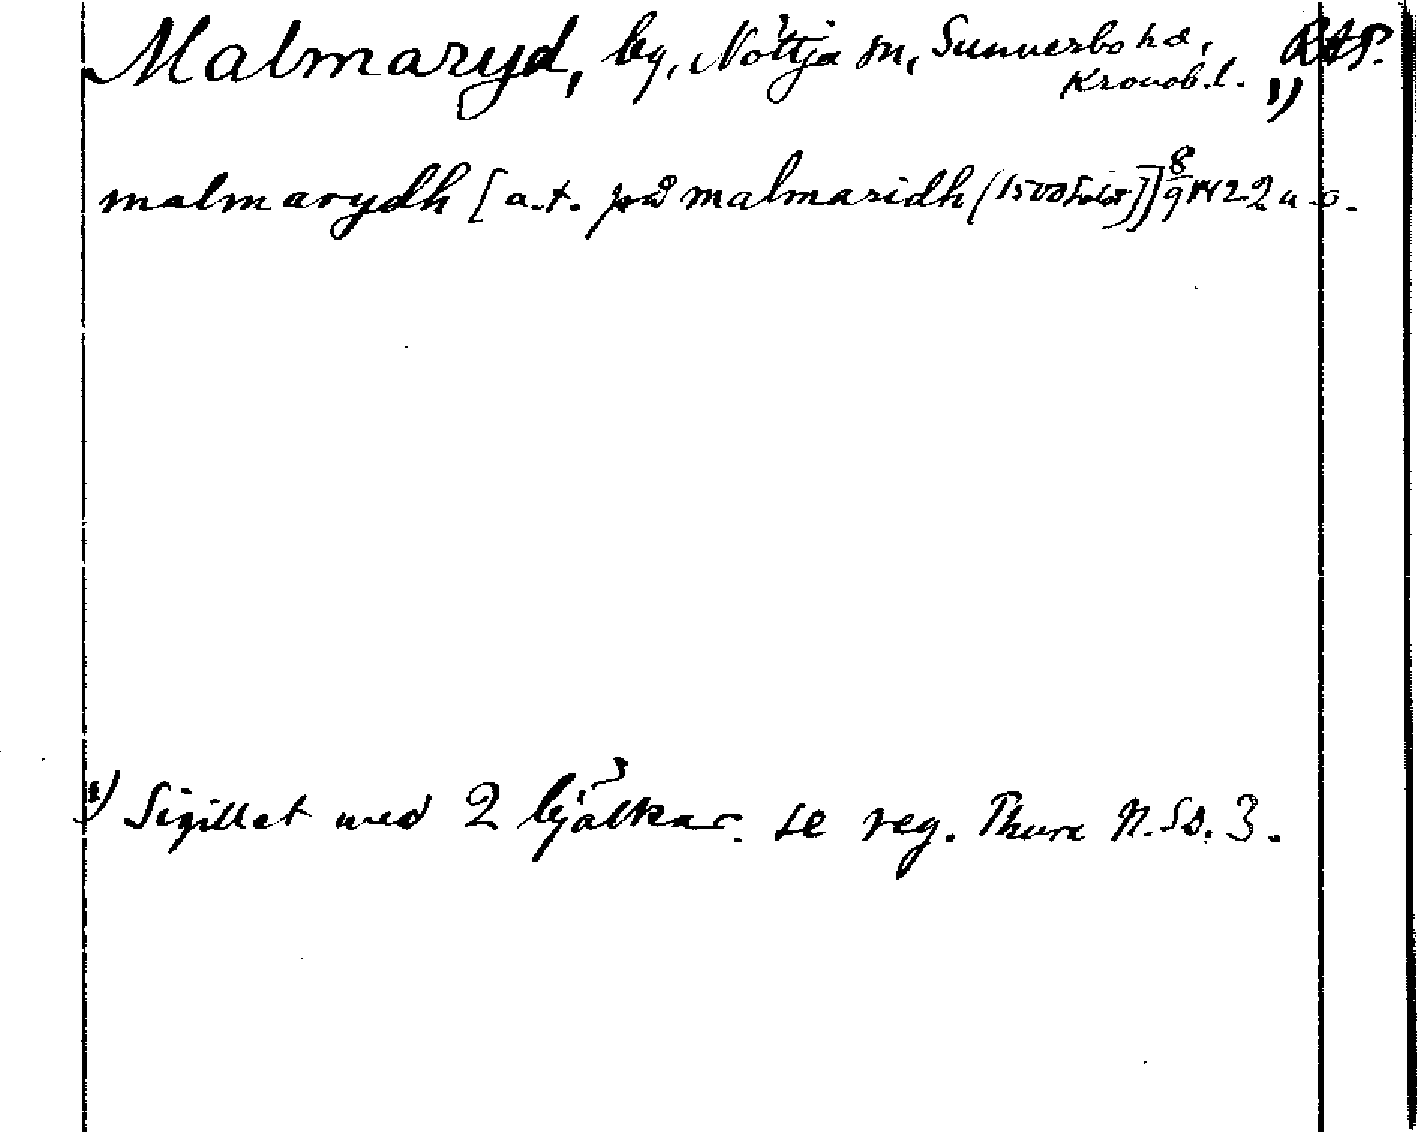 Malmaryd, by, Nöttja sn, Sunnerbo hd, RAP.
Kronob. l. 1)
malmarydh [a.t. på malmaridh (1500talet)] 8/9 1422 u o.
1) Sigillet med 2 bjälkar. se reg. Thure N. Sd. 3.